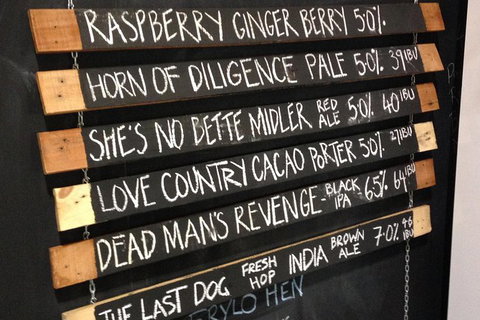 RASPBERRY GINGER BERRY 5.0%.
HORN OF DILIGENCE PALE 5.0% 39 IBU
SHE'S NO BETTE MIDLER RED ALE 5.0% 40 IBU
LOVE COUNTRY CACAO PORTER 5.0% 27 IBU
DEAD MAN'S REVENGE - BLACK IPA 6.5% 64 IBU
THE LAST DOG FRESH HOP INDIA BROWN ALE 7.0% 46 IBU
HEN